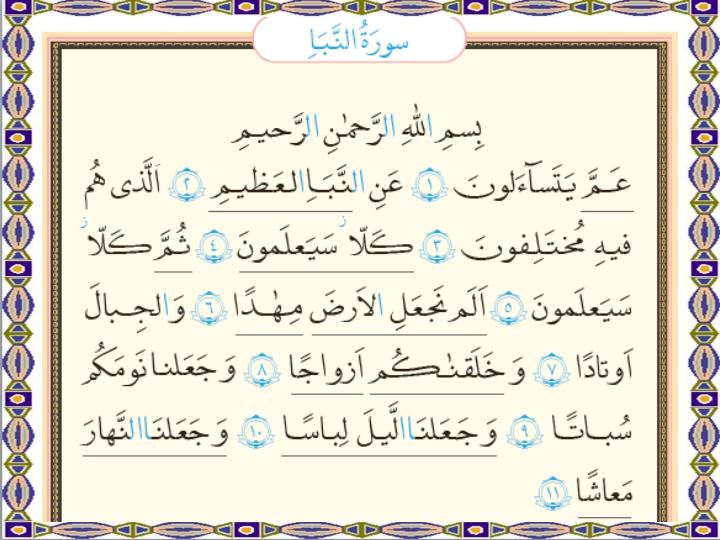 سورَةُ النَّبَاِ
بِسمِ اللهِ الرَّحمٰنِ الرَّحیمِ
عَمَّ یَتَسآءَلونَ ﴿١﴾ عَنِ النَّبَاِ العَظیمِ ﴿٢﴾ اَلَّذی هُم
فیهِ مُختَلِفونَ ﴿٣﴾ کَلّا ز سَیَعلَمونَ ﴿٤﴾ ثُمَّ کَلّا ز
سَیَعلَمونَ ﴿٥﴾ اَلَم نَجعَلِ الاَرضَ مِهٰدًا ﴿٦﴾ وَ الجِبالَ
اَوتادًا ﴿٧﴾ وَ خَلَقنٰکُم اَزواجًا ﴿٨﴾ وَ جَعَلنا نَومَکُم
سُباتًا ﴿٩﴾ وَ جَعَلنَا الَّیلَ لِباسًا ﴿١٠﴾ وَ جَعَلنَا النَّهارَ
مَعاشًا ﴿١١﴾